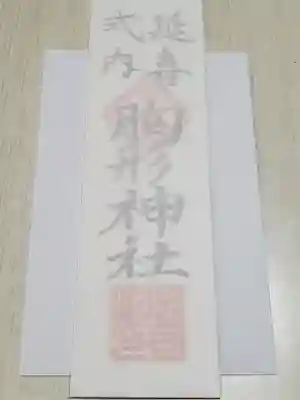 延喜
式内
胸形神社